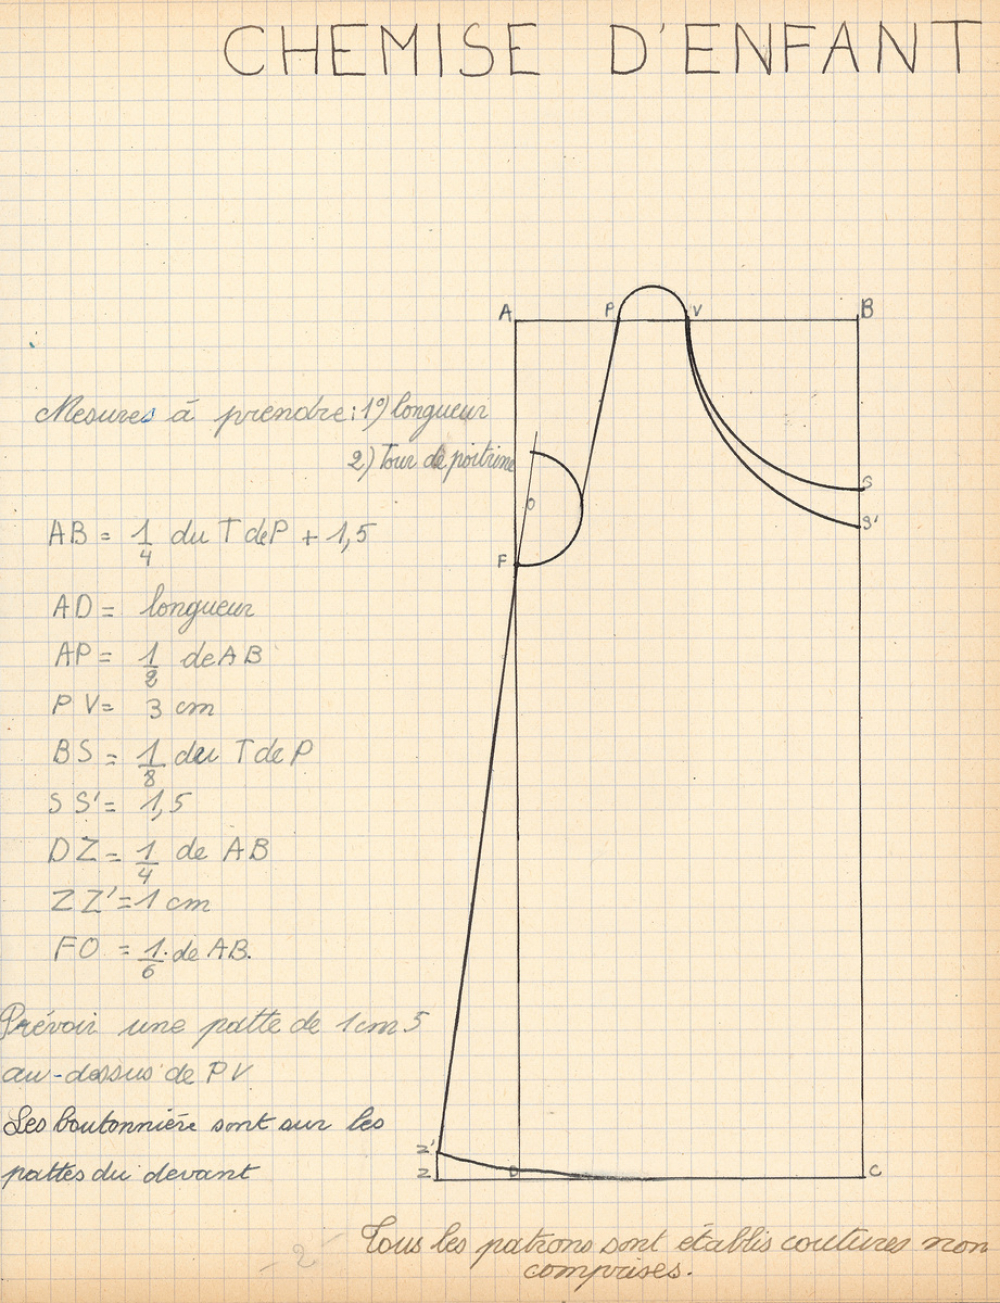 CHEMISE D'ENFANT
A P V B
Mesures à prendre: 1°) longueur
2) Tour de poitrine
S
O
S'
AB = 1/4 du T de P + 1,5
F
AD = longueur
AP = 1/2 de AB
PV = 3 cm
BS = 1/8 du T de P
SS' = 1,5
DZ = 1/4 de AB
ZZ' = 1 cm
FO = 1/6 de AB.
Prévoir une patte de 1cm5
au-dessus de PV
Les boutonnière sont sur les
pattes du devant
Z'
Z D C
Tous les patrons sont établis coutures non
comprises.
2